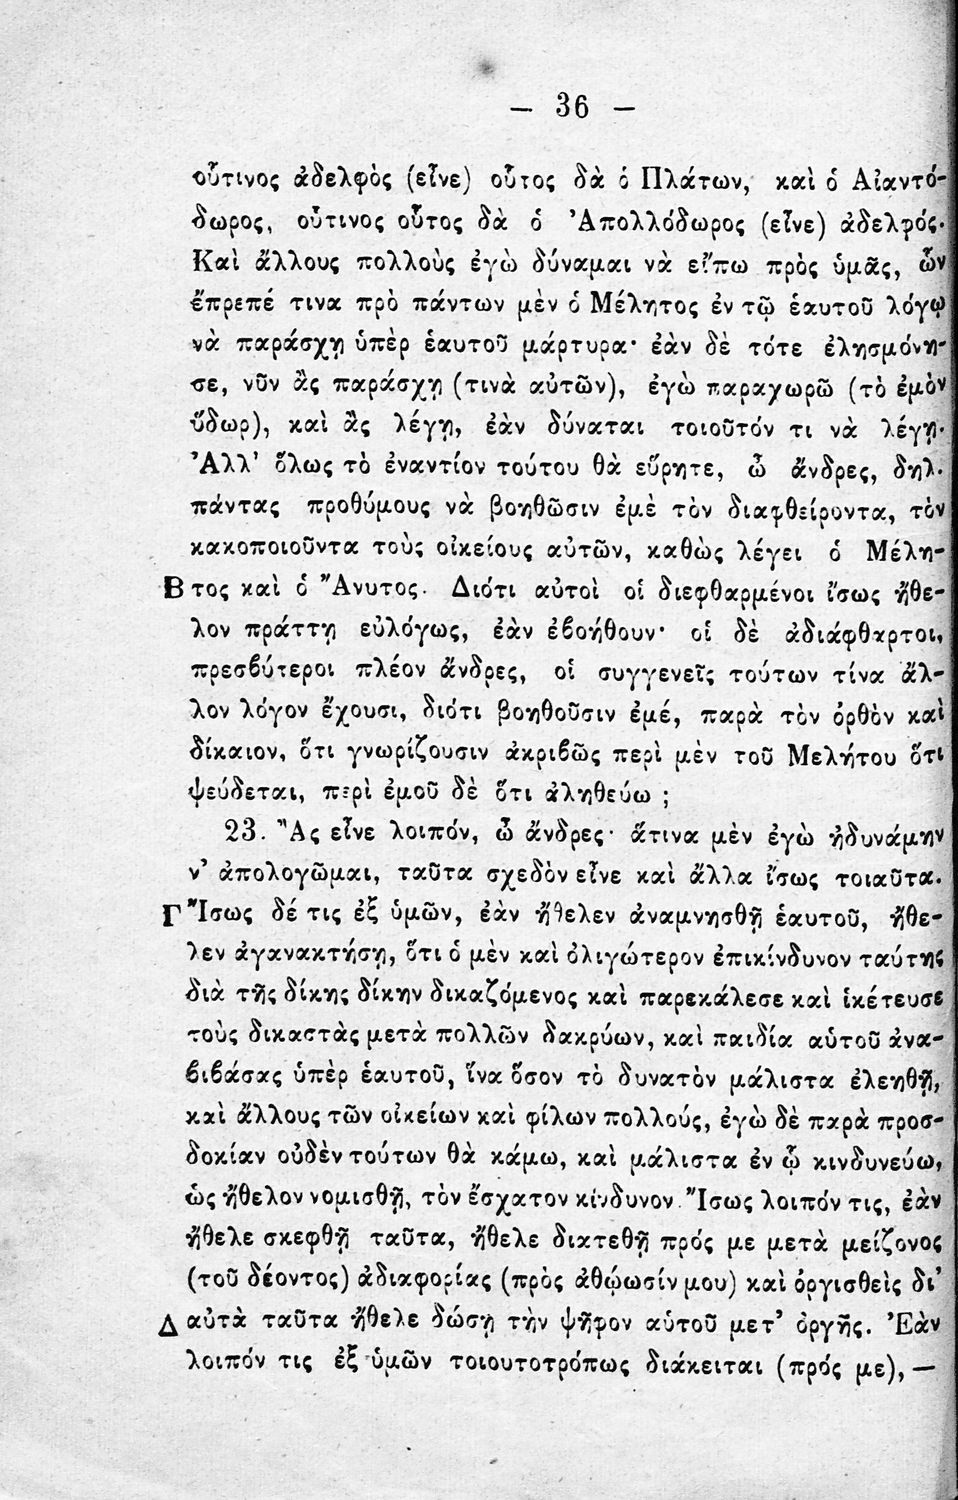 — 36 —
οὗτινος ἀδελφὸς (εἶνε) οὗτος δὰ ὁ Πλάτων, καὶ ὁ Αἰαντό-
δωρος, οὗτινος οὗτος δὰ ὁ Ἀπολλόδωρος (εἶνε) ἀδελφός.
Καὶ ἄλλους πολλοὺς ἐγὼ δύναμαι νὰ εἴπω πρὸς ὑμᾶς, ὧν
ἔπρεπέ τινα πρὸ πάντων μὲν ὁ Μέλητος ἐν τῷ ἑαυτοῦ λόγῳ
νὰ παράσχῃ ὑπὲρ ἑαυτοῦ μάρτυρα· ἐὰν δὲ τότε ἐλησμόνη-
σε, νῦν ἂς παράσχῃ (τινὰ αὐτῶν), ἐγὼ παραχωρῶ (τὸ ἐμὸν
ὕδωρ), καὶ ἂς λέγῃ, ἐὰν δύναται τοιοῦτόν τι νὰ λέγῃ.
Ἀλλ' ὅλως τὸ ἐναντίον τούτου θὰ εὕρητε, ὦ ἄνδρες, δηλ.
πάντας προθύμους νὰ βοηθῶσιν ἐμὲ τὸν διαφθείροντα, τὸν
κακοποιοῦντα τοὺς οἰκείους αὐτῶν, καθὼς λέγει ὁ Μέλη-
Β τος καὶ ὁ Ἄνυτος. Διότι αὐτοὶ οἱ διεφθαρμένοι ἴσως ἤθε-
λον πράττῃ εὐλόγως, ἐὰν ἐβοήθουν· οἱ δὲ ἀδιάφθαρτοι,
πρεσβύτεροι πλέον ἄνδρες, οἱ συγγενεῖς τούτων τίνα ἄλ-
λον λόγον ἔχουσι, διότι βοηθοῦσιν ἐμέ, παρὰ τὸν ὀρθὸν καὶ
δίκαιον, ὅτι γνωρίζουσιν ἀκριβῶς περὶ μὲν τοῦ Μελήτου ὅτι
ψεύδεται, περὶ ἐμοῦ δὲ ὅτι ἀληθεύω ;
23. Ἂς εἶνε λοιπόν, ὦ ἄνδρες· ἅτινα μὲν ἐγὼ ἠδυνάμην
ν' ἀπολογῶμαι, ταῦτα σχεδὸν εἶνε καὶ ἄλλα ἴσως τοιαῦτα.
Γ Ἴσως δέ τις ἐξ ὑμῶν, ἐὰν ἤθελεν ἀναμνησθῆ ἑαυτοῦ, ἤθε-
λεν ἀγανακτήσῃ, ὅτι ὁ μὲν καὶ ὀλιγώτερον ἐπικίνδυνον ταύτης
διὰ τῆς δίκης δίκην δικαζόμενος καὶ παρεκάλεσε καὶ ἱκέτευσε
τοὺς δικαστὰς μετὰ πολλῶν δακρύων, καὶ παιδία αὑτοῦ ἀνα-
βιβάσας ὑπὲρ ἑαυτοῦ, ἵνα ὅσον τὸ δυνατὸν μάλιστα ἐλεηθῇ,
καὶ ἄλλους τῶν οἰκείων καὶ φίλων πολλούς, ἐγὼ δὲ παρὰ προσ-
δοκίαν οὐδὲν τούτων θὰ κάμω, καὶ μάλιστα ἐν ᾧ κινδυνεύω,
ὡς ἤθελον νομισθῆ, τὸν ἔσχατον κίνδυνον. Ἴσως λοιπόν τις, ἐὰν
ἤθελε σκεφθῆ ταῦτα, ἤθελε διατεθῆ πρός με μετὰ μείζονος
(τοῦ δέοντος) ἀδιαφορίας (πρὸς ἀθῴωσίν μου) καὶ ὀργισθεὶς δι'
Δ αὐτὰ ταῦτα ἤθελε δώσῃ τὴν ψῆφον αὑτοῦ μετ' ὀργῆς. Ἐὰν
λοιπόν τις ἐξ ὑμῶν τοιουτοτρόπως διάκειται (πρός με), —